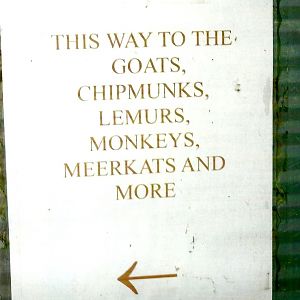 THIS WAY TO THE
GOATS,
CHIPMUNKS,
LEMURS,
MONKEYS,
MEERKATS AND
MORE